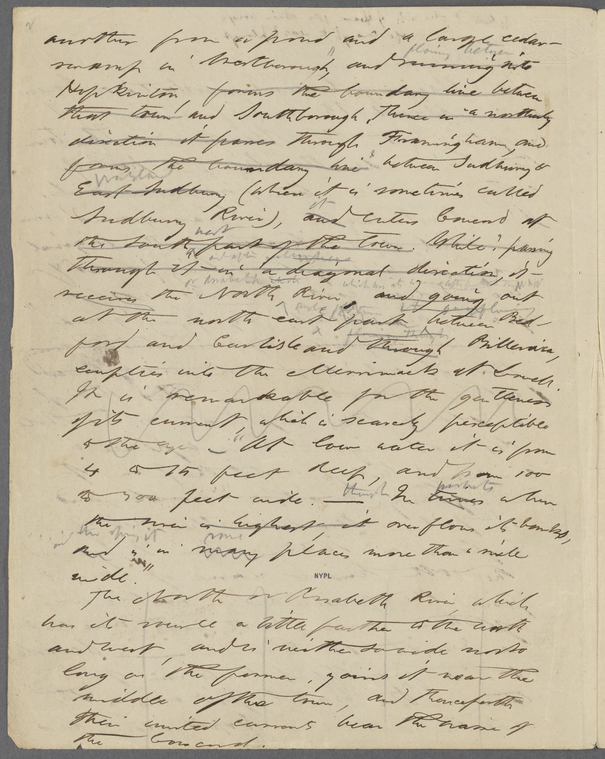 another from a pond and a large cedar-
swamp in Westborough," and running into
flowing between
Hopkinton, forms the boundary line between
that town and Southborough, thence in "a northerly
direction it passes through Framingham, and
forms the boundary line" between Sudbury &
East Sudbury (where it is sometimes called
Sudbury River), and enters Concord at
the South part of the town. While "passing
through it in a diagonal direction, it
receives the North River, and going out
at the north east part between Bed
ford and Carlisle and through Billerica,
empties into the Merrimack at Lowell.
It is remarkable for the gentleness
of its current, which is scarcely perceptible
to the eye. "At low water it is from
4 to 15 feet deep, and from 100
to 300 feet wide. — In times when
the river is highest it overflows its banks,
and is in many places more than a mile
wide."
NYPL
The North or Assabeth River, which
has its source a little farther to the north
and west, and is neither so wide nor so
long as the former, joins it near the
middle of the town, and thenceforth
their united currents bear the name of
the Concord.